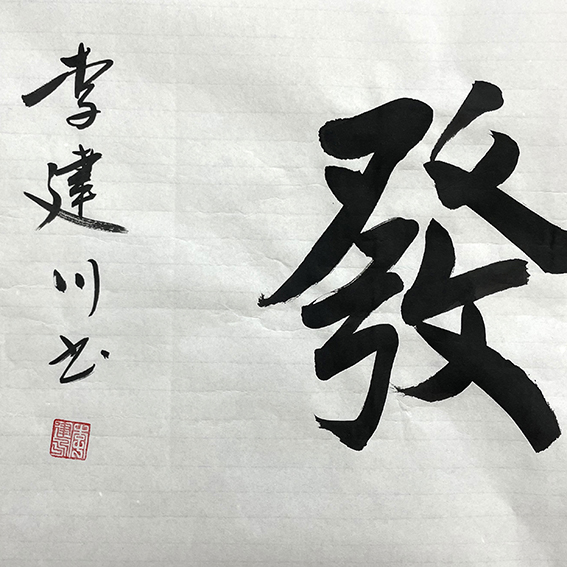 發
李建川书